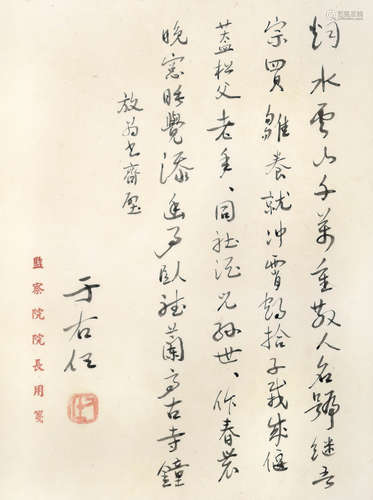 烟水雲山千萬重散人名號继吾
宗買雛養就冲霄鶴拾子栽成偃
蓋松父老年、同社酒兒孫世、作春農
晚窓睡覺添幽事臥聽蘭亭古寺鐘
放翁书齋壁
于右任
監察院院長用箋